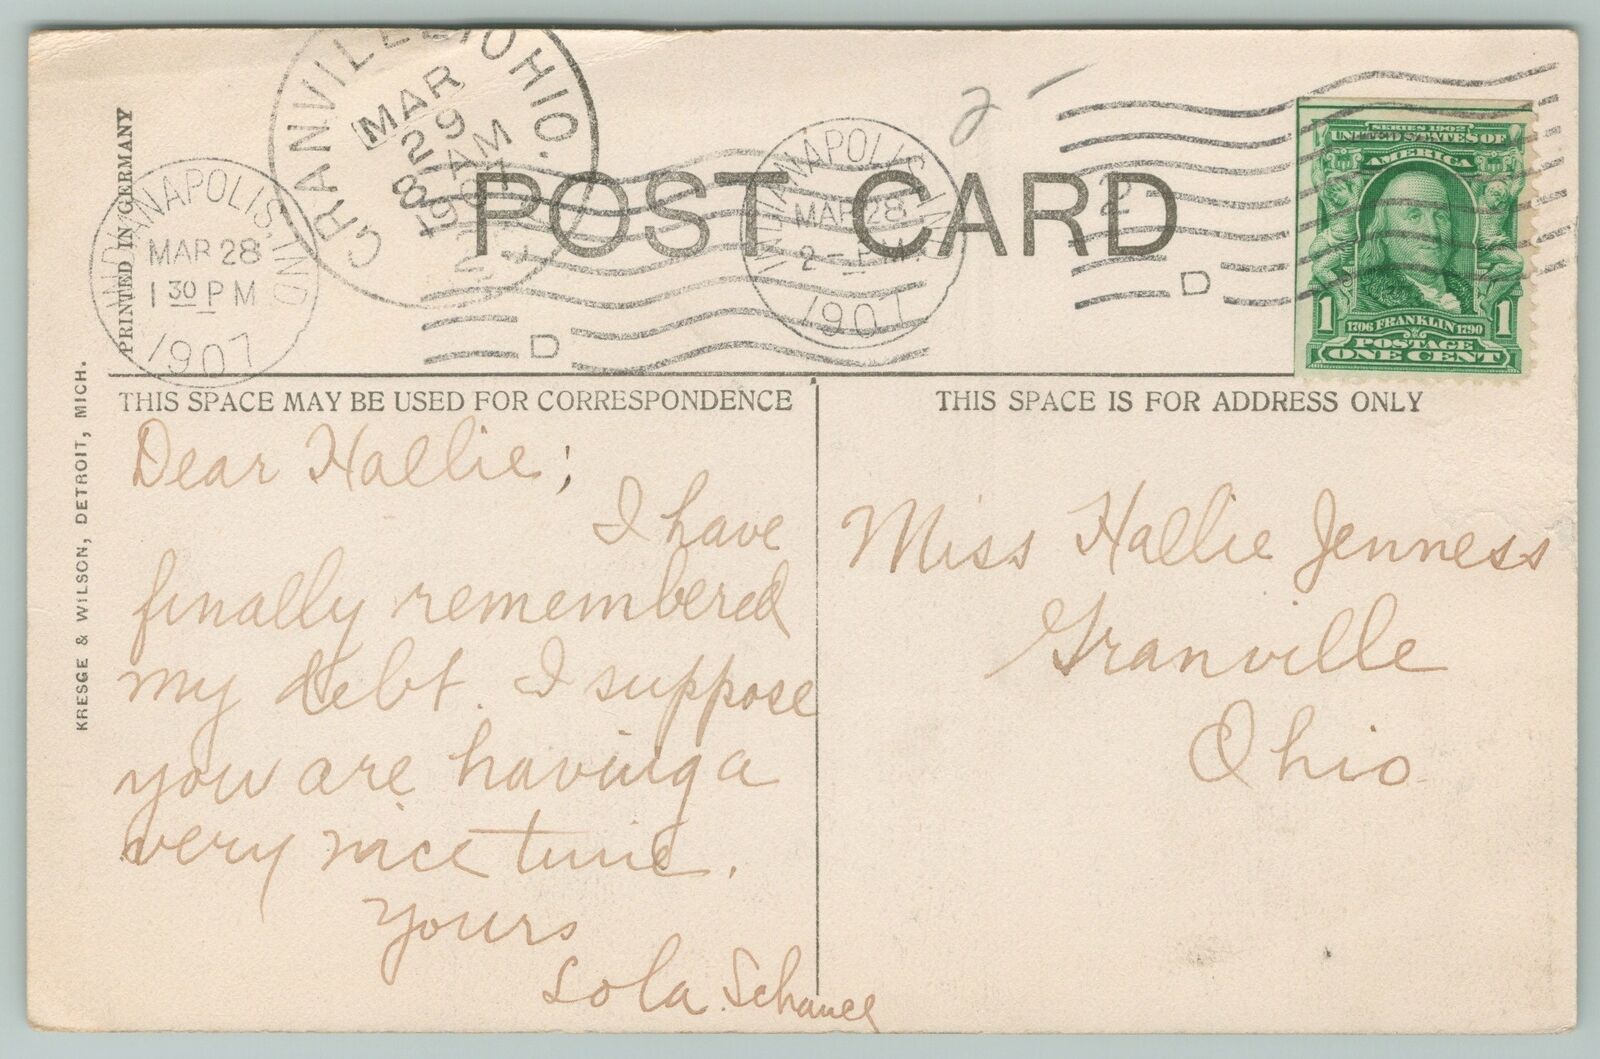 GRANVILLE, OHIO.
MAR
29
8 AM
1907
INDIANAPOLIS, IND
MAR 28
1 30 PM
1907
D
INDIANAPOLIS, IND
MAR 28
2 - PM
1907
2
D
2
POST CARD
SERIES 1902
UNITED STATES OF
AMERICA
1 1706 FRANKLIN 1790 1
POSTAGE
ONE CENT
PRINTED IN GERMANY
KRESGE & WILSON, DETROIT, MICH.
THIS SPACE MAY BE USED FOR CORRESPONDENCE
Dear Hallie;
I have
finally remembered
my debt. I suppose
you are having a
very nice time.
Yours
Lola
THIS SPACE IS FOR ADDRESS ONLY
Miss Hallie Jenness
Granville
Ohio